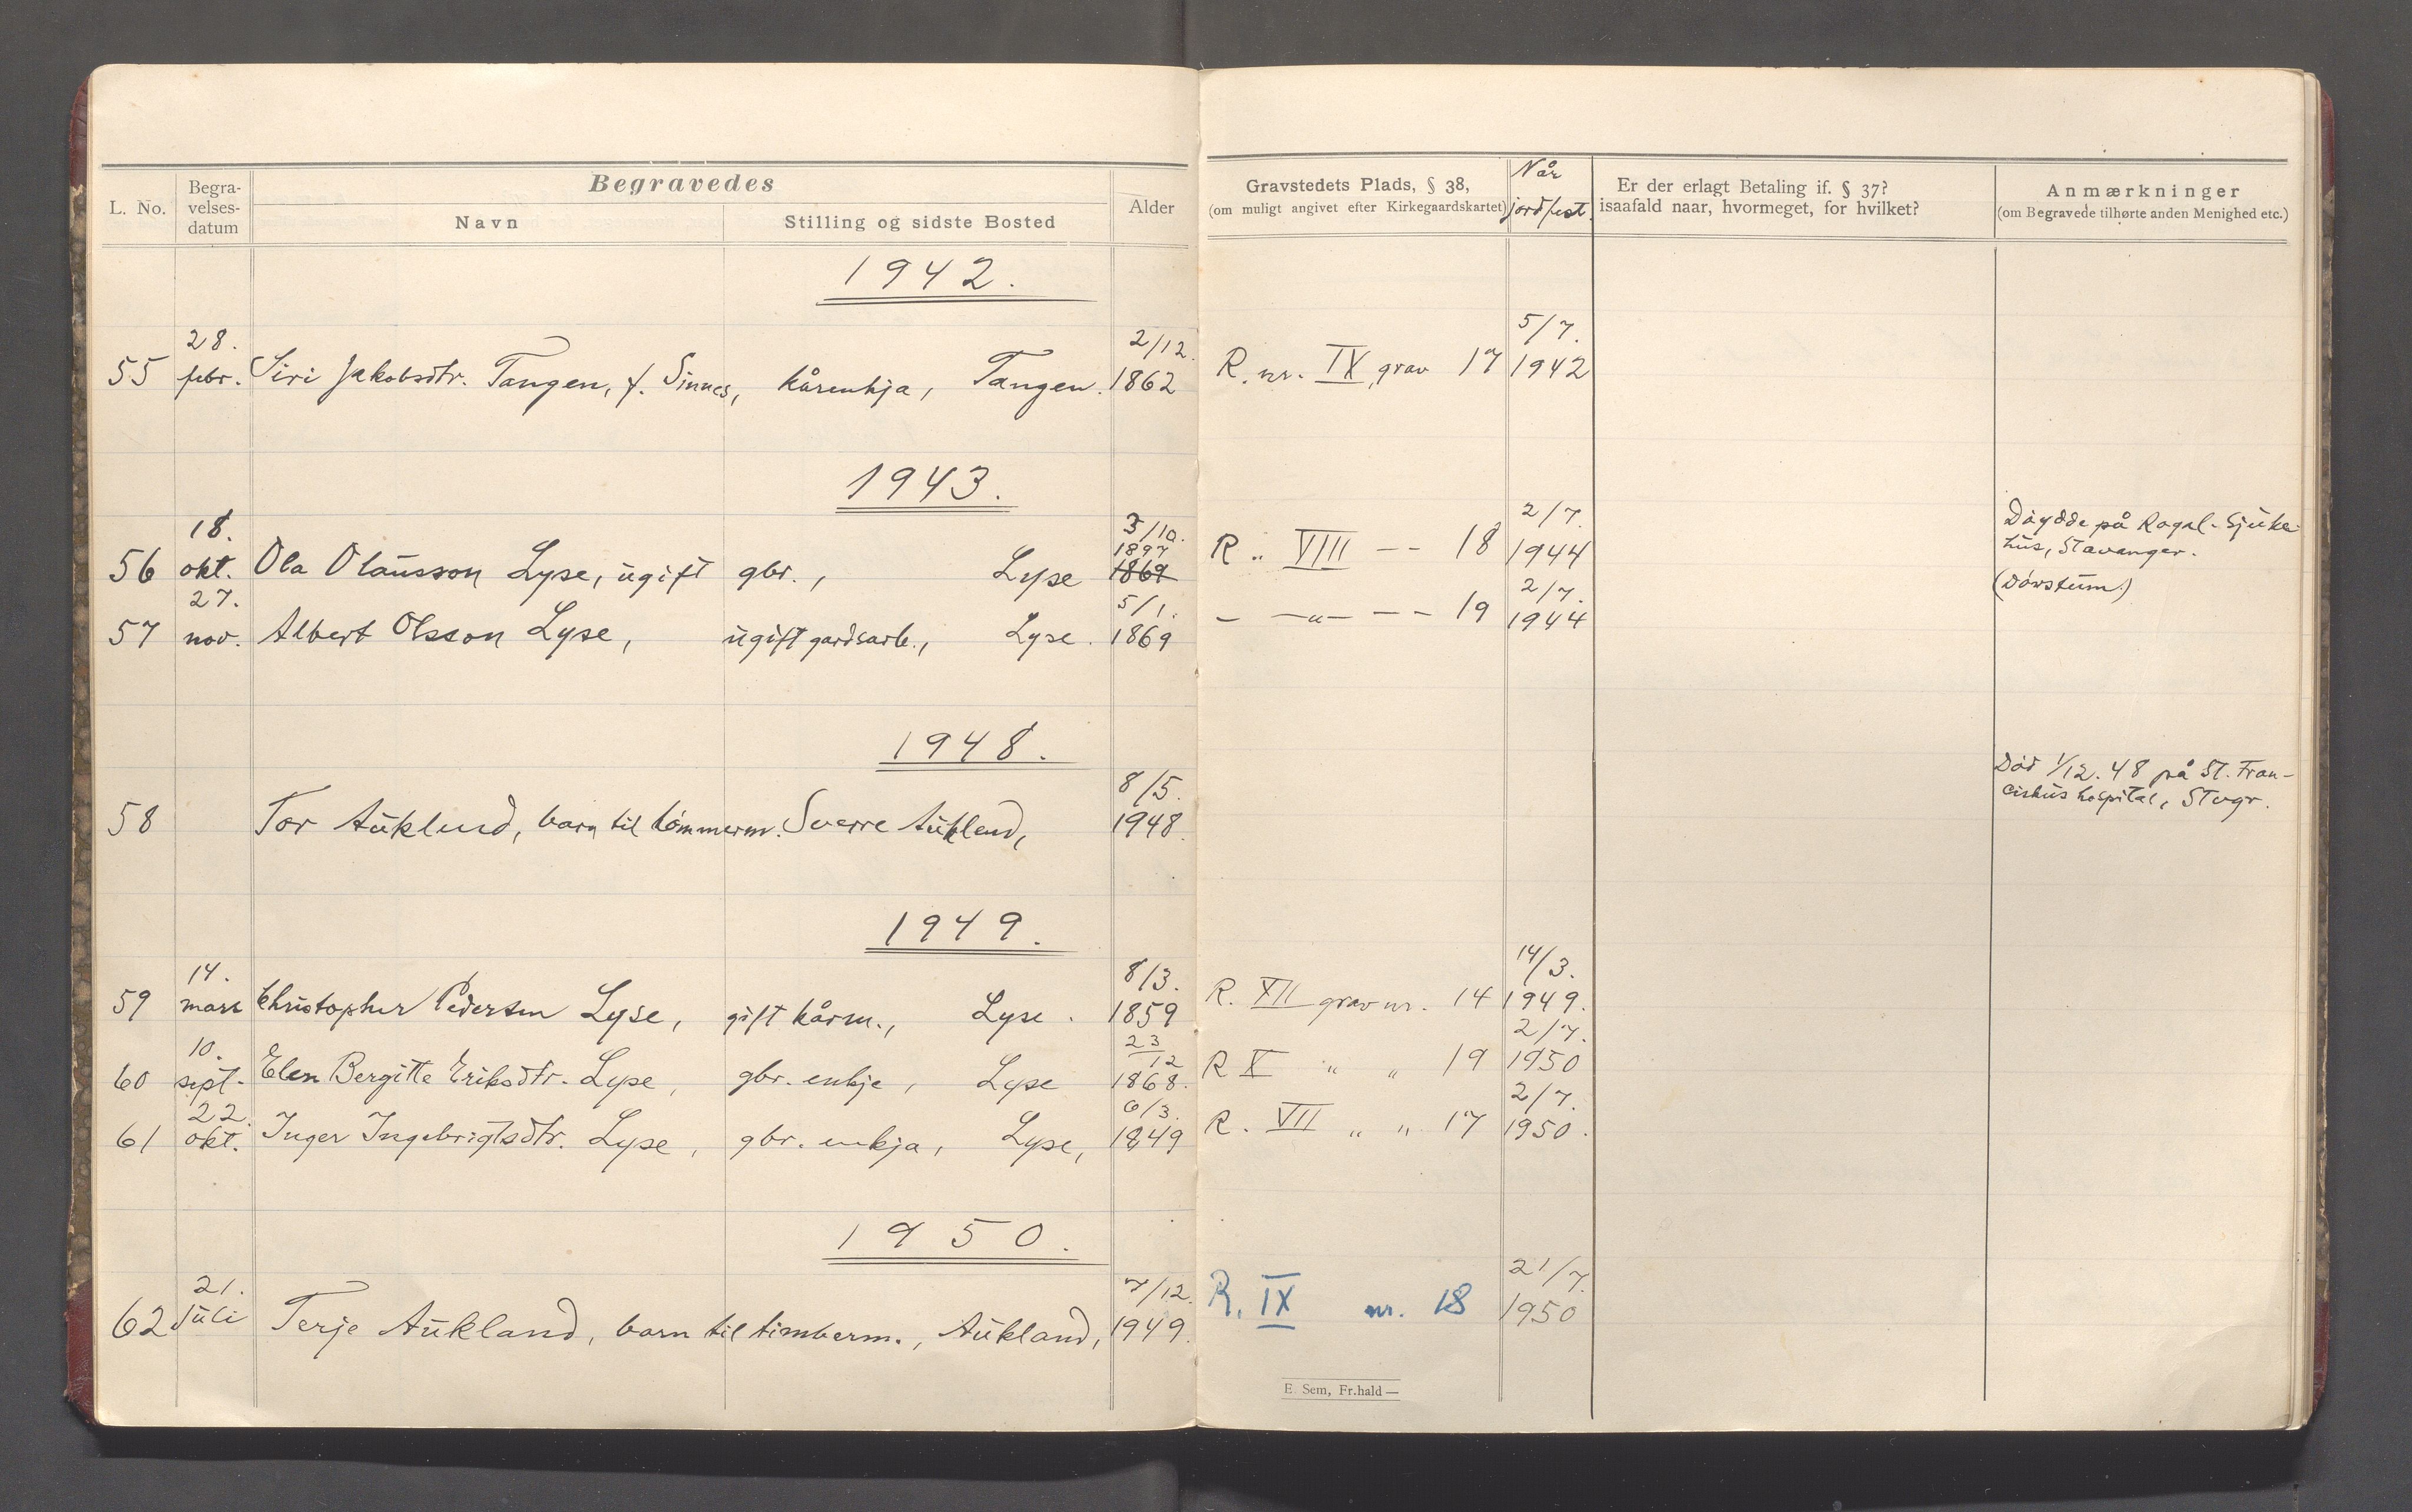 L. No.
Begra-
velses-
datum
Begravedes
Navn
Stilling og sidste Bosted
Alder
Gravstedets Plads, § 38,
(om muligt angivet efter Kirkegaardskartet)
Når
jordfest.
Er der erlagt Betaling if. § 37?
isaafald naar, hvormeget, for hvilket?
Anmærkninger
(om Begravede tilhørte anden Menighed etc.)
1942.
28. 2/12. 5/7.
55 febr. Siri Jakobsdtr. Tangen, f. Sinnes, kårenkja, Tangen. 1862 R. nr. IX, grav 17 1942
1943.
18. 3/10. 2/7.
1897
56 okt. Ola Olausson Lyse, ugift gbr., Lyse 1869 R „ VIII — — 18 1944
Døydde på Rogal. Sjuke-
hus, Stavanger.
(Døvstum.)
27. 5/1. 2/7.
57 nov. Albert Olsson Lyse, ugift gardsarb., Lyse. 1869 — —„— — — 19 1944
1948.
8/5.
58 Tor Aukland, barn til tømmerm. Sverre Aukland, 1948.
Død 1/12. 48 på St. Fran-
ciskus hospital, Stvgr.
1949.
14. 8/3. 14/3.
59 mars Christopher Pedersen Lyse, gift kårm., Lyse. 1859 R. XII grav nr. 14 1949.
10. 23/12 2/7.
60 sept. Elen Bergitte Eriksdtr. Lyse, gbr. enkje, Lyse 1868. R X „ „ 19 1950
22. 6/3. 2/7.
61 okt. Inger Ingebrigtsdtr. Lyse, gbr. enkja, Lyse, 1849 R. VII „ „ 17 1950.
1950.
21. 7/12. 21/7.
62 Juli Terje Aukland, barn til timberm., Aukland, 1949. R. IX nr. 18 1950
E. Sem, Fr.hald —